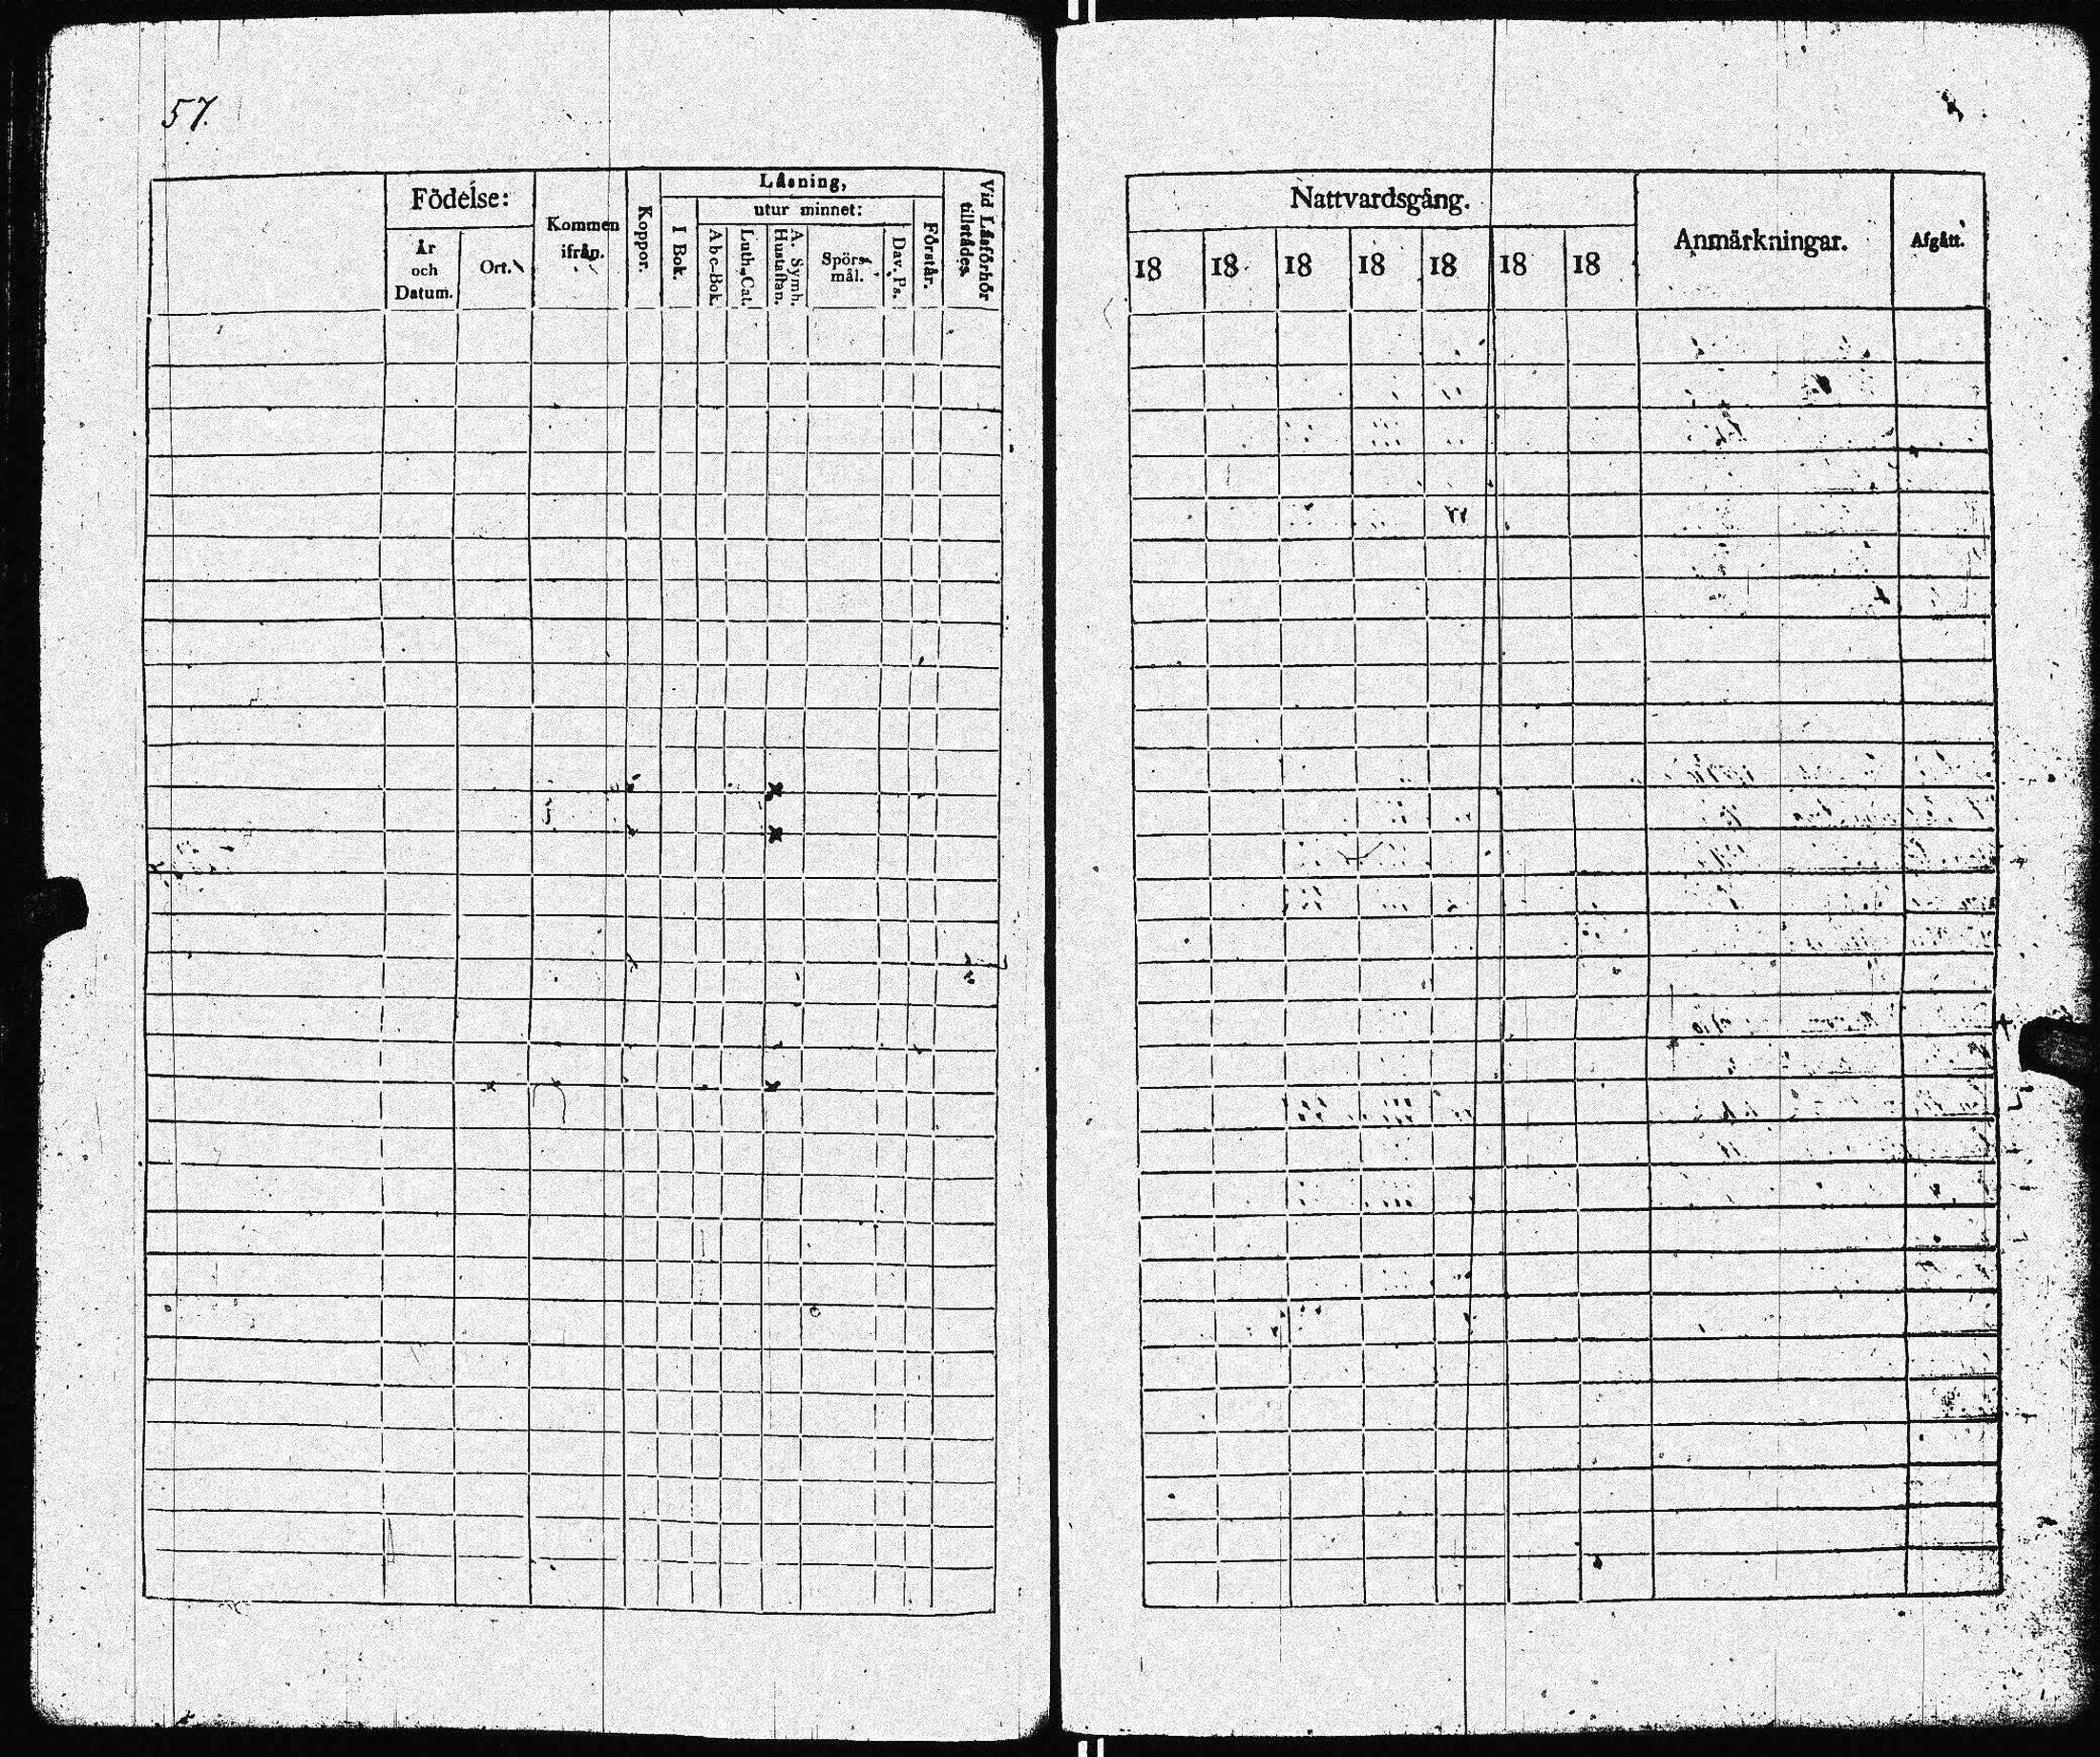 57.
Födelse:
År och Datum.
Ort.
Kommen ifrån.
Koppor.
Läsning,
I Bok.
utur minnet:
Abc-Bok.
Luth. Cat.
A. Symb. Hustaflan.
Spörsmål.
Dav. Ps.
Förstår.
Vid Läsförhör tillstädes.
Nattvardsgång.
18 18 18 18 18 18 18
Anmärkningar.
Afgått.